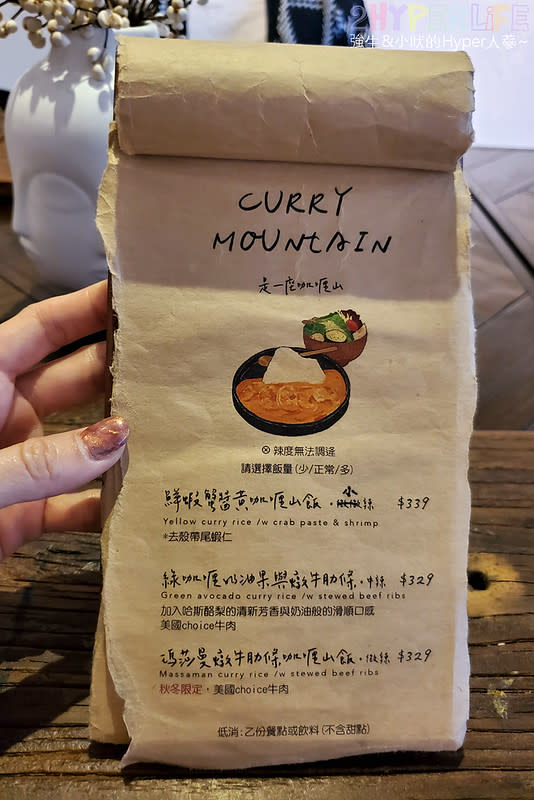 2HYPERLIFE
強生&小吠的Hyper人蔘~
CURRY
MOUNTAIN
是一座咖喱山
⊗ 辣度無法調逢
請選擇飯量(少/正常/多)
鮮蝦蟹醬黃咖喱山飯・小辣 $339
Yellow curry rice /w crab paste & shrimp
*去殼帶尾蝦仁
綠咖喱奶油果與燉牛肋條・中辣 $329
Green avocado curry rice /w stewed beef ribs
加入哈斯酪梨的清新芳香與奶油般的滑順口感
美國choice牛肉
瑪莎曼燉牛肋條咖喱山飯・微辣 $329
Massaman curry rice /w stewed beef ribs
秋冬限定,美國choice牛肉
低消:乙份餐點或飲料(不含甜點)